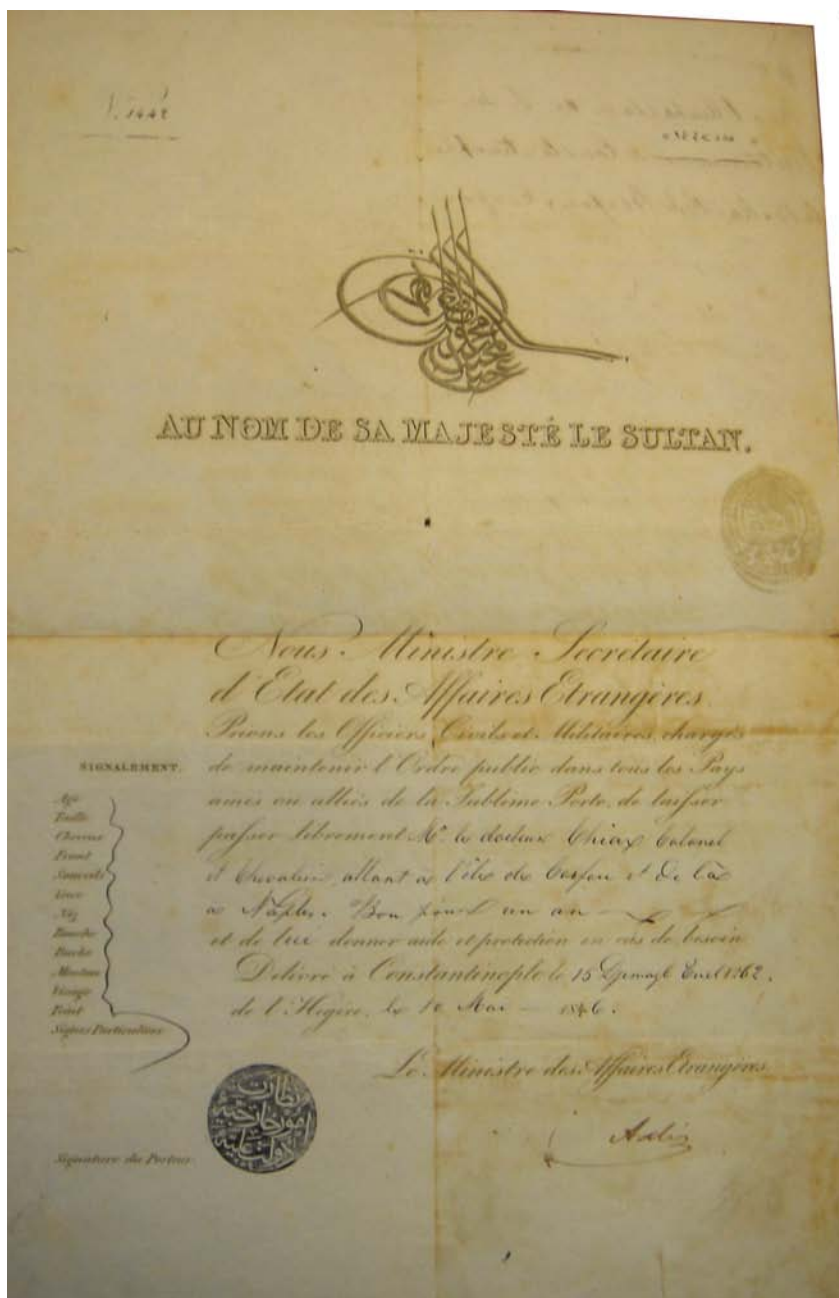 AU NOM DE SA MAJESTÉ LE SULTAN.
Nous Ministre Secrétaire
d'Etat des Affaires Etrangères
Prions les Officiers Civils et Militaires chargés
de maintenir l'Ordre public dans tous les Pays
amis ou alliés de la Sublime Porte, de laisser
passer librement Mr. le docteur Colonel
et Chevalier allant à l'île de Corfou et De là
à Naples. Bon pour un an
et de lui donner aide et protection en cas de besoin
Délivré à Constantinople le 15 1262.
de l'Hégire, le 10 Mai 1846.
Le Ministre des Affaires Etrangères
SIGNALEMENT.
Age
Taille
Cheveux
Front
Sourcils
Yeux
Nez
Bouche
Barbe
Menton
Visage
Teint
Signes Particuliers
نظارت
امور خارجية
Signature du Porteur